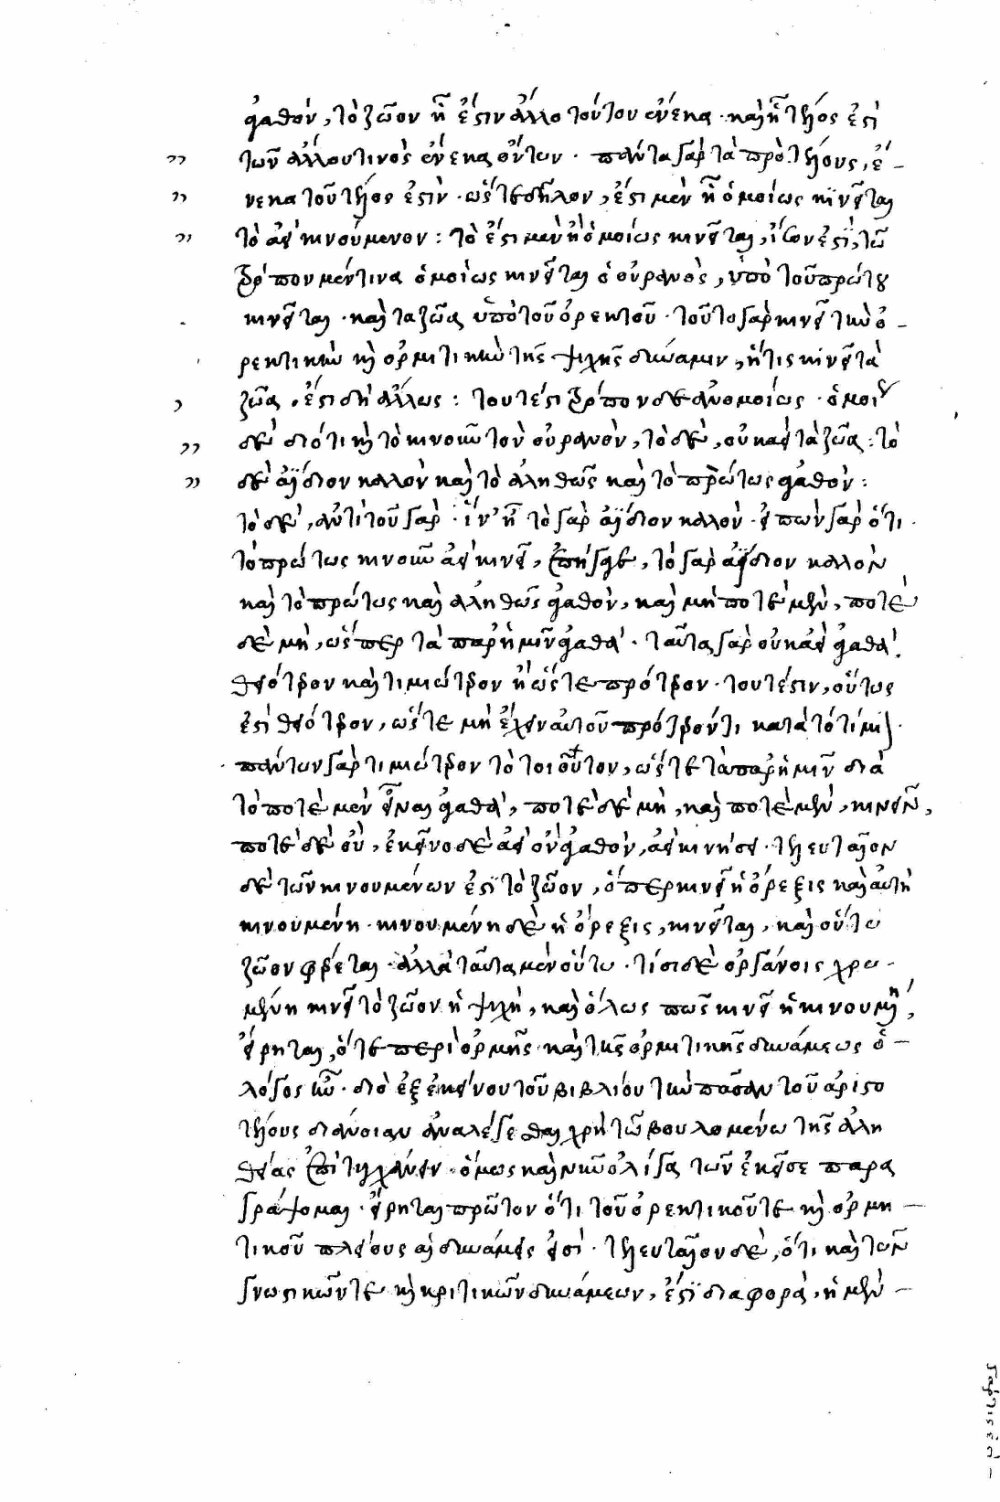 ἀγαθόν, τὸ ζῶον ᾗ ἐστιν ἄλλο τούτου ἕνεκα· καὶ ᾗ τέλος ἐστὶ
τῶν ἄλλου τινὸς ἕνεκα ὄντων· πάντα γὰρ τὰ πρὸ τέλους, ἕ-
νεκα τοῦ τέλος ἐστίν· ὥστε δῆλον, ἔστι μὲν ᾗ ὁμοίως κινεῖται
τὸ ἀεὶ κινούμενον: τὸ ἔστι μὲν ᾗ ὁμοίως κινεῖται, ἴσον ἐστὶ, τῶ
τρόπον μέν τινα ὁμοίως κινεῖται ὁ οὐρανὸς, ὑπὸ τοῦ πρώτου
κινεῖται· καὶ τὰ ζῶα ὑπὸ τοῦ ὀρεκτοῦ· τοῦτο γὰρ κινεῖ τὴν ὀ-
ρεκτικὴν κὴ ὁρμητικὴν τῆς ψυχῆς δύναμιν, ἥτις κινεῖ τὰ
ζῶα, ἔστι δὴ ἄλλως: τουτέστι τρόπον δὲ ἀνομοίως· ὁμοίου
δὲ διότι κὴ τὸ κινοῦν τὸν οὐρανὸν, τὸ δὲ, οὐκ ἀεὶ τὰ ζῶα: τὸ
δὲ ἀΐδιον καλὸν καὶ τὸ ἀληθῶς καὶ τὸ πρώτως ἀγαθὸν:
τὸ δὲ, ἀντὶ τοῦ γὰρ· ἵν' ᾖ τὸ γὰρ ἀΐδιον καλὸν· εἰπὼν γὰρ ὅτι
τὸ πρώτως κινοῦν ἀεὶ κινεῖ, ἐπήγαγε, τὸ γὰρ ἀΐδιον καλὸν
καὶ τὸ πρώτως καὶ ἀληθῶς ἀγαθὸν, καὶ μὴ ποτὲ μὲν, ποτὲ
δὲ μὴ, ὥσπερ τὰ παρ' ἡμῖν ἀγαθά· ταῦτα γὰρ οὐκ ἀεὶ ἀγαθά.
θειότερον καὶ τιμιώτερον ἢ ὥστε πρότερον· τουτέστιν, οὕτως
ἐστὶ θειότερον, ὥστε μὴ ἔχειν αὐτοῦ πρότερόν τι κατὰ τὸ τίμιον·
πάντων γὰρ τιμιώτερον τὸ τοιοῦτον, ὥστε τὰ παρ' ἡμῖν διὰ
τὸ ποτὲ μὲν εἶναι ἀγαθὰ, ποτὲ δὲ μὴ, καὶ ποτὲ μὲν, κινεῖν,
ποτὲ δὲ οὐ, ἐκεῖνο δὲ ἀεὶ ὂν ἀγαθὸν, ἀεὶ κινήσει· τελευταῖον
δὲ τῶν κινουμένων ἐστὶ τὸ ζῶον, ὅπερ κινεῖ ἡ ὄρεξις καὶ αὐτὴ
κινουμένη· κινουμένη δὲ ἡ ὄρεξις, κινεῖται, καὶ οὕτω
ζῶον φέρεται· ἀλλὰ ταῦτα μὲν οὕτω· τίσι δὲ ὀργάνοις χρω-
μένη κινεῖ τὸ ζῶον ἡ ψυχὴ, καὶ ὅλως πῶς κινεῖ ἢ κινουμένη,
εἴρηται, ὅτε περὶ ὁρμῆς καὶ τῆς ὁρμητικῆς δυνάμεως ὁ
λόγος ἦν· διὸ ἐξ ἐκείνου τοῦ βιβλίου τὴν πᾶσαν τοῦ ἀριστο
τέλους διάνοιαν ἀναλέγεσθαι χρὴ τῶ βουλομένω τῆς ἀλη
θείας ἐπιτυχάνειν· ὅμως καὶ νῦν ὀλίγα τῶν ἐκεῖσε παρα
γράψομαι· εἴρηται πρῶτον ὅτι τοῦ ὀρεκτικοῦ τε κὴ ὁρμη-
τικοῦ πλείους αἱ δυνάμεις εἰσί· τελευταῖον δὲ, ὅτι καὶ τῶν
γνωστικῶν τε κὴ κριτικῶν δυνάμεων, ἐστὶ διαφορὰ, ἡ μὲν-